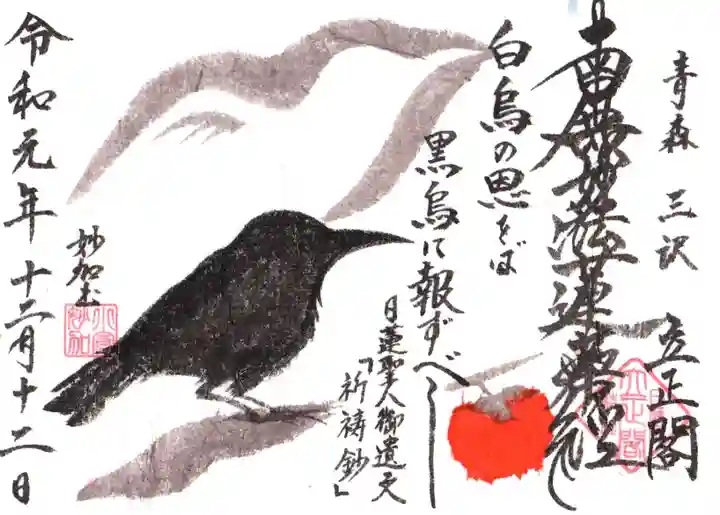 青森 三沢 立正閣
南無妙法蓮華経
白烏の恩をば
黒烏に報ずべし
日蓮聖人御遺文
「祈祷鈔」
妙加士
令和元年十二月十二日